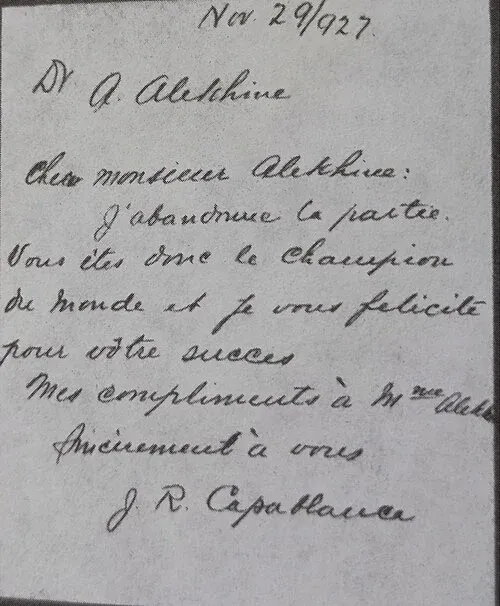 Nov. 29/927.
Dr A. Alekhine
Cher monsieur Alekhine:
J'abandonne la partie.
Vous êtes donc le champion
du monde et je vous felicite
pour vôtre succes
Mes compliments à Mme Alekh
Sincèrement à vous
J. R. Capablanca